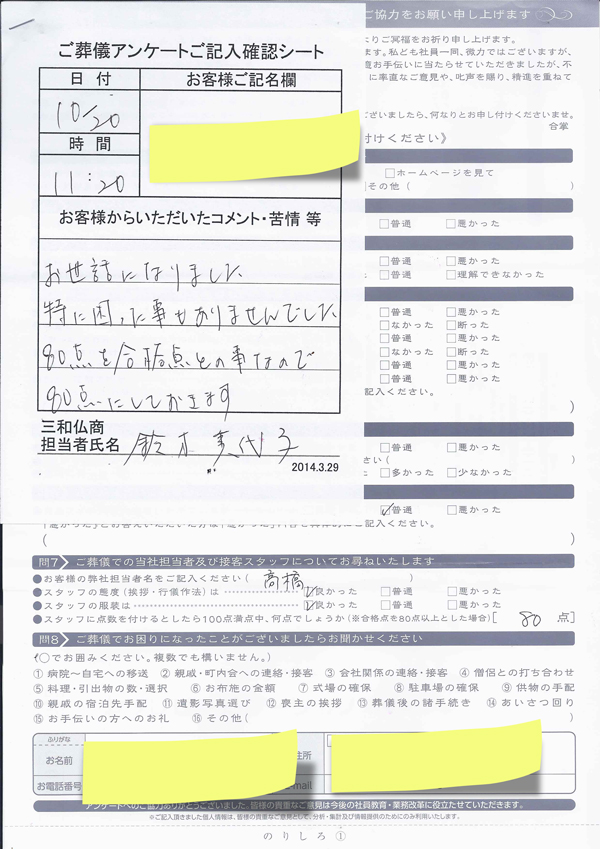 ご葬儀アンケートご記入確認シート
日付
お客様ご記名欄
10/20
時間
11:20
お客様からいただいたコメント・苦情 等
お世話になりました
特に困った事もありませんでした
80点を合格点との事なので
80点にしておきます
三和仏商
担当者氏名 鈴木美代子
2014.3.29
ご協力をお願い申し上げます
よりご冥福をお祈り申し上げます。
ます。私ども社員一同、微力ではございますが、
お手伝いに当たらせていただきましたが、不
に率直なご意見や、叱声を賜り、精進を重ねて
ございましたら、何なりとお申し付けくださいませ。
合掌
付けください》
□ホームページを見て
□その他( )
□普通 □悪かった
□普通 □悪かった
□普通 □理解できなかった
□普通 □悪かった
□なかった □断った
□普通 □悪かった
□なかった □断った
□普通 □悪かった
□普通 □悪かった
記入ください。
)
□普通 □悪かった
さい( )
□多かった □少なかった
☑普通 □悪かった
ご記入ください。
( )
問7 ご葬儀での当社担当者及び接客スタッフについてお尋ねいたします
●お客様の弊社担当者名をご記入ください( 高橋 )
●スタッフの態度(挨拶・行儀作法)は ☑良かった □普通 □悪かった
●スタッフの服装は ☑良かった □普通 □悪かった
●スタッフに点数を付けるとしたら100点満点中、何点でしょうか(※合格点を80点以上とした場合)[ 80 点]
問8 ご葬儀でお困りになったことがございましたらお聞かせください
(○でお囲みください。複数でも構いません。)
①病院〜自宅への移送 ②親戚・町内会への連絡・接客 ③会社関係の連絡・接客 ④僧侶との打ち合わせ
⑤料理・引出物の数・選択 ⑥お布施の金額 ⑦式場の確保 ⑧駐車場の確保 ⑨供物の手配
⑩親戚の宿泊先手配 ⑪遺影写真選び ⑫喪主の挨拶 ⑬葬儀後の諸手続き ⑭あいさつ回り
⑮お手伝いの方へのお礼 ⑯その他( )
ふりがな
お名前
住所
お電話番号
e-mail
アンケートへのご協力ありがとうございました。皆様の貴重なご意見は今後の社員教育・業務改革に役立たせていただきます。
※ご記入頂きました個人情報は、皆様の貴重なご意見として、分析・集計及び情報提供のためにのみ利用いたします。
のりしろ①